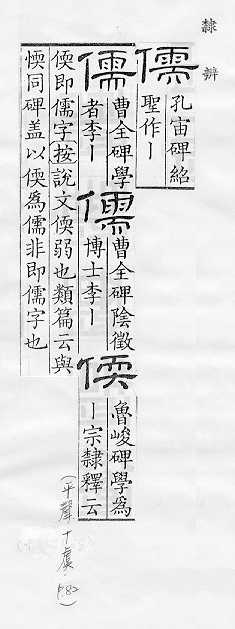 隸辨
儒
孔宙碑紹
聖作丨
儒
曹全碑學
者李丨
儒
曹全碑陰徵
博士李丨
偄
魯峻碑學為
丨宗隸釋云
偄即儒字按說文偄弱也類篇云與
愞同碑盖以偄為儒非即儒字也
(平聲十虞 P.82)